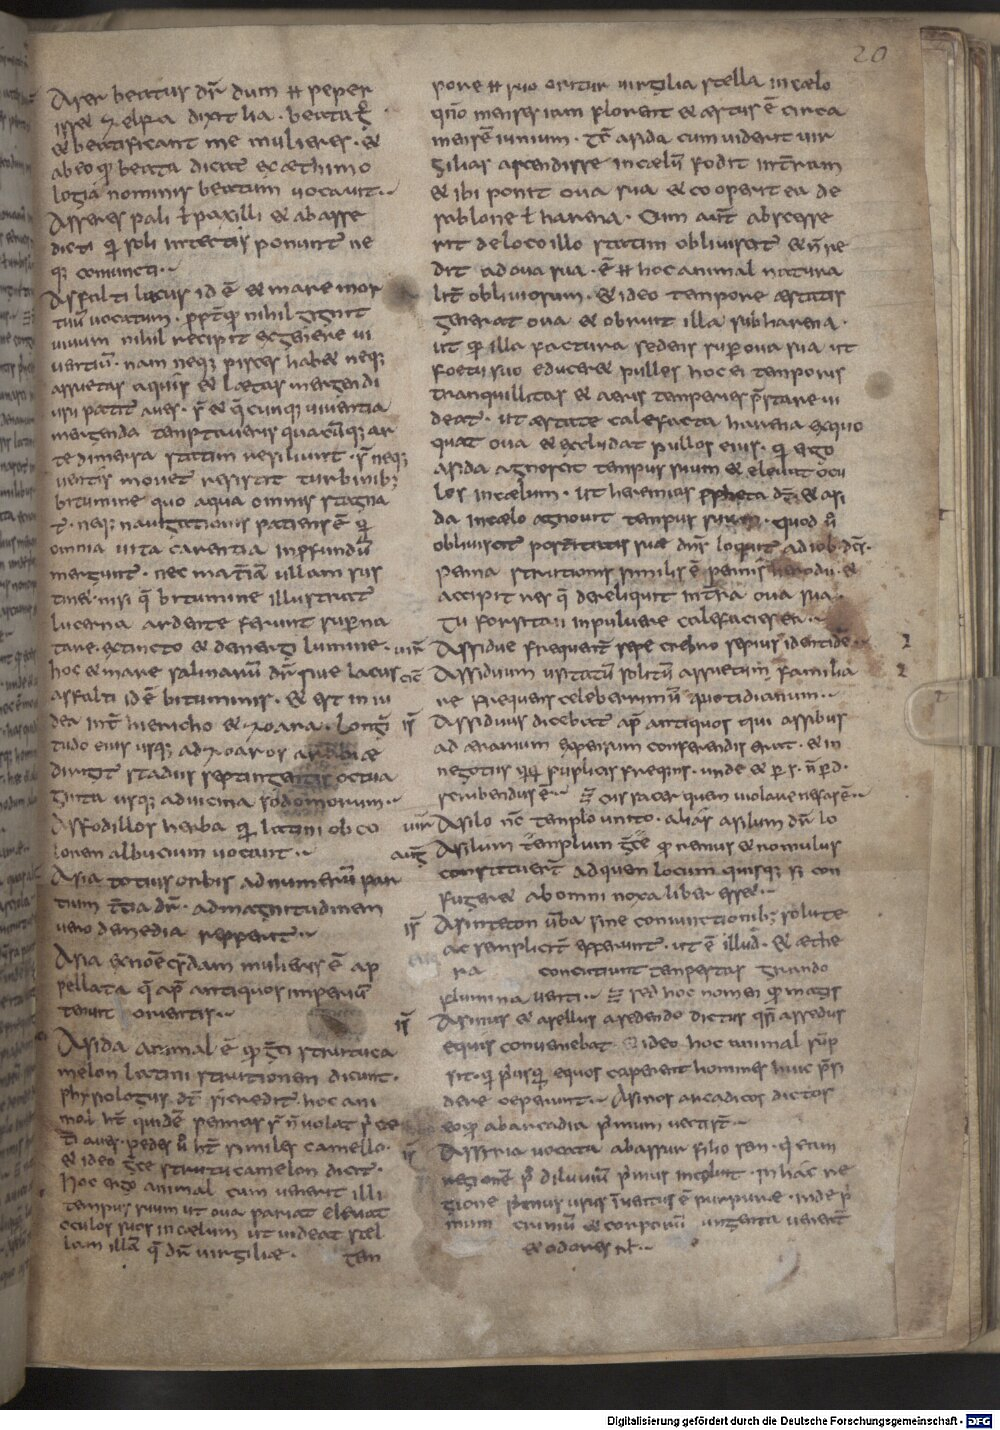 20
Aser beatus dr̄ dum
isset zelpa dixit lia. beata
et beatificant me mulieres. et
ab eo qd beata dicatur ex æthimo
logia nominis beatum vocavit.
Asseres pali ł paxilli et ab asse
dicti qi soli intectis ponuntur ne
q; coniuncti.
Asfalti lacus id ē et mare mor
tuū vocatum. nihil gignit
vivum nihil recipit ex genere vi
ventiū. nam neq; pisces habet neq;
assuetas aquis et lætas mergendi
usu patitur aves. et cunq; viventia
mergenda temptaveris quacūq; ar
te dimersa statim resiliunt. neq;
ventis movetur resistit turbinib;
bitumine quo aqua omnis stagna
tur. neq; navigationis patiens ē
omnia vita carentia in pfundū
merguntur. nec materiā ullam sus
tinet. nisi bitumine illustratur
lucerna ardente ferunt superna
tare. extincto et demergi lumine.
hoc et mare salinarū dr̄ sive lacus
asfalti id ē bituminis. et est in iu
dea int hiericho et zoara. Longi
tudo eius usq; ad zoaros arabiæ
dirigitur stadiis septingentis octua
ginta usq; ad vicina sodomorum.
Asfodillos herba latini ob co
lorem albucium vocant.
Asia totius orbis ad numerū par
tium tertia dr̄. ad magnitudinem
vero dimedia repperitur.
Asia ex nōe cuiusdam mulieris ē ap
pellata antiquos imperiū
tenuit orientis.
Asida animal ē struthoca
melon latini strutionem dicunt.
Phisiologus dt sicredit hoc ani
mal ht quidē pennas n̄ volat
aves. pedes ht similes camello.
et ideo gce strutucamelon dicitur.
Hoc ergo animal cum venerit illi
tempus suum ut ova pariat elevat
oculos suos in cælum ut videat stel
lam illā dn̄ virgiliæ. tem
pore suo oritur virgilia stella in cælo
qn̄o menses iam florent et æstus ē circa
mensē iunium. Tc̄ asida cum viderit vir
gilias ascendisse in cælū fodit in tr̄ram
et ibi ponit ova sua et cooperit ea de
sablone ł harena. Cum aut abscesse
rit de loco illo statim obliviscitur et n̄ re
dit ad ova sua. ē hoc animal natura
litr obliviosum. et ideo tempore æstatis
generat ova et obruit illa sub harena.
ut illa factura sedens super ova sua ut
foetu suo educeret pullos hoc ei temporis
tranquillitas et aeris temperies præstare vi
deatur. ut æstate calefacta harena excquo
quat ova et excludat pullos eius. ergo
asida agnoscit tempus suum et elevat ocu
los in cælum. ut heremias ppheta dt. et asi
da in cælo agnovit tempus suum. quod
obliviscitur posteritatis suæ dns loquitur ad iob dcs.
Penna strutionis similis ē pennis herodii. et
accipitres derelinquit in terra ova sua.
Tu forsitan in pulvere calefacies ea.
Assidue frequentr sepe crebro sepius identidē.
Assiduum usitatū solitū assuetum familia
re frequens celeberrimū quotidianum.
Assiduus dicebatur ap̄ antiquos qui assibus
ad ærarium expensum conferendis erat. et in
negotiis publicis frequens. unde et p. s. n̄ p d.
scribendus ē. cus sacer quem violare nefas ē.
Asilo nc templo vinto. alias asilum dn̄ lo
Asilum templum gce remus et romulus
constituerunt ad quem locum quisque con
fugeret ab omni noxa liber esset.
Asinteton vba sine coniunctionib; solute
ac simplicitr efferuntur. ut ē illud. et æthe
ra concutiunt tempestas grando
flumina venti. sed hoc nomen magis
Asinus et asellus a sedendo dictus assedus
equis conveniebat. ideo hoc animal
sit. priusq̄ equos caperent homines huic præsi
dere ceperunt. Asinos arcadicos dictos
eo ab arcadia primum vecti st.
Assiria vocata ab assur filio sem. qui eam
regionē post diluviū primus incoluit. in hac re
gione primus usus inventus ē purpuræ. inde pri
mum criniū et corporū ungenta venerunt
et odores
vir
cic
is
vir
aug
is
is
is
Digitalisierung gefördert durch die Deutsche Forschungsgemeinschaft - DFG